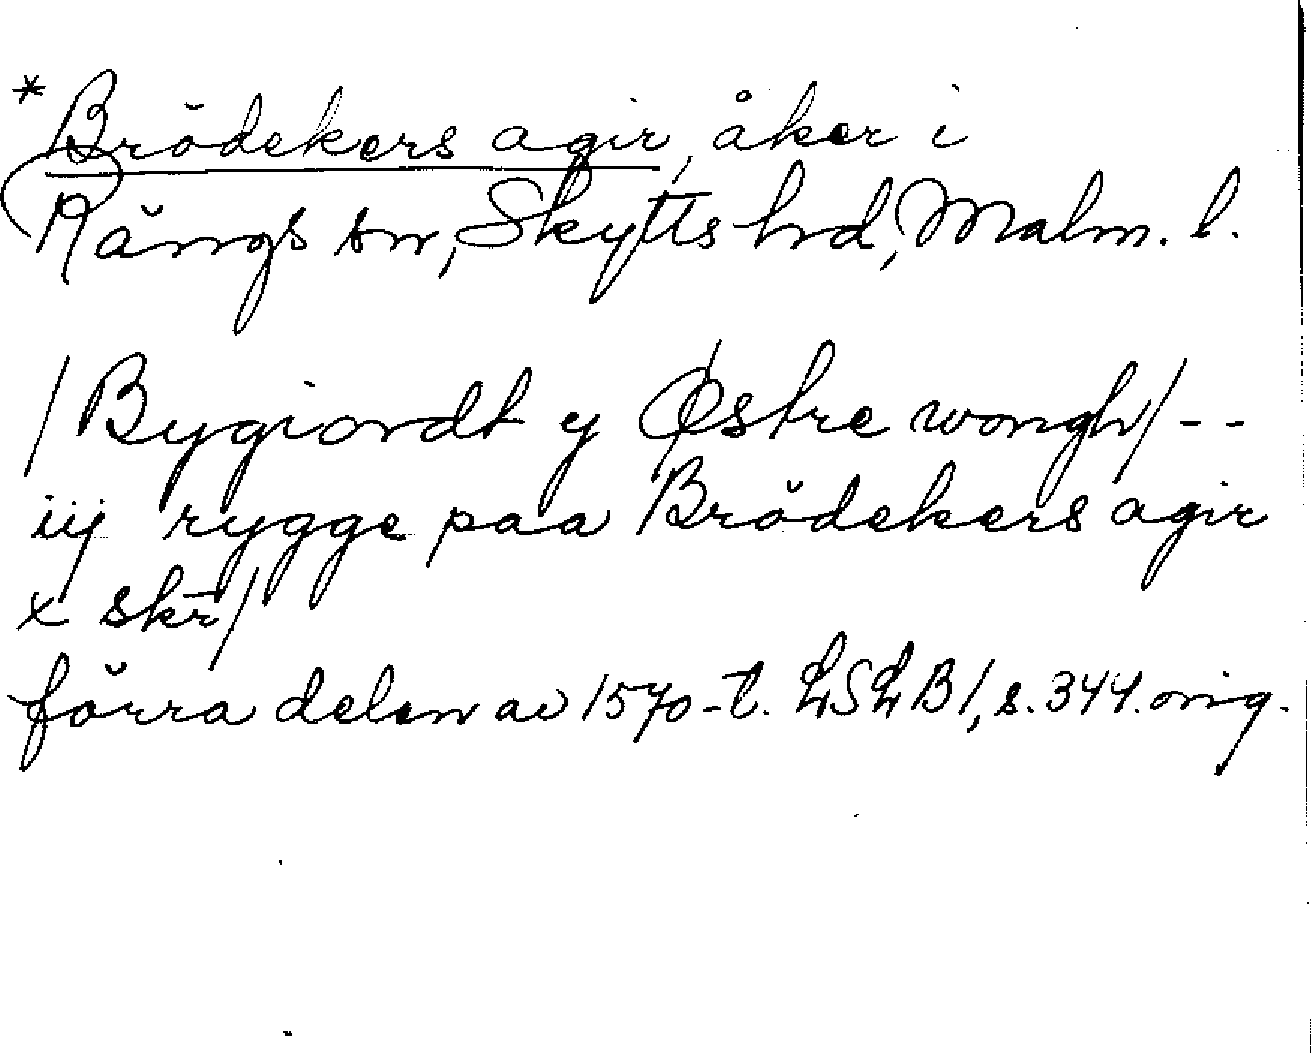 *Brödekers agir, åker i
Rängs sn, Skytts hrd, Malm. l.
/Bygiordt y Østre wongh/--
iij rygge paa Brödekers agir
x skr/
förra delen av 1570-t. LSLB1, s. 344. orig.